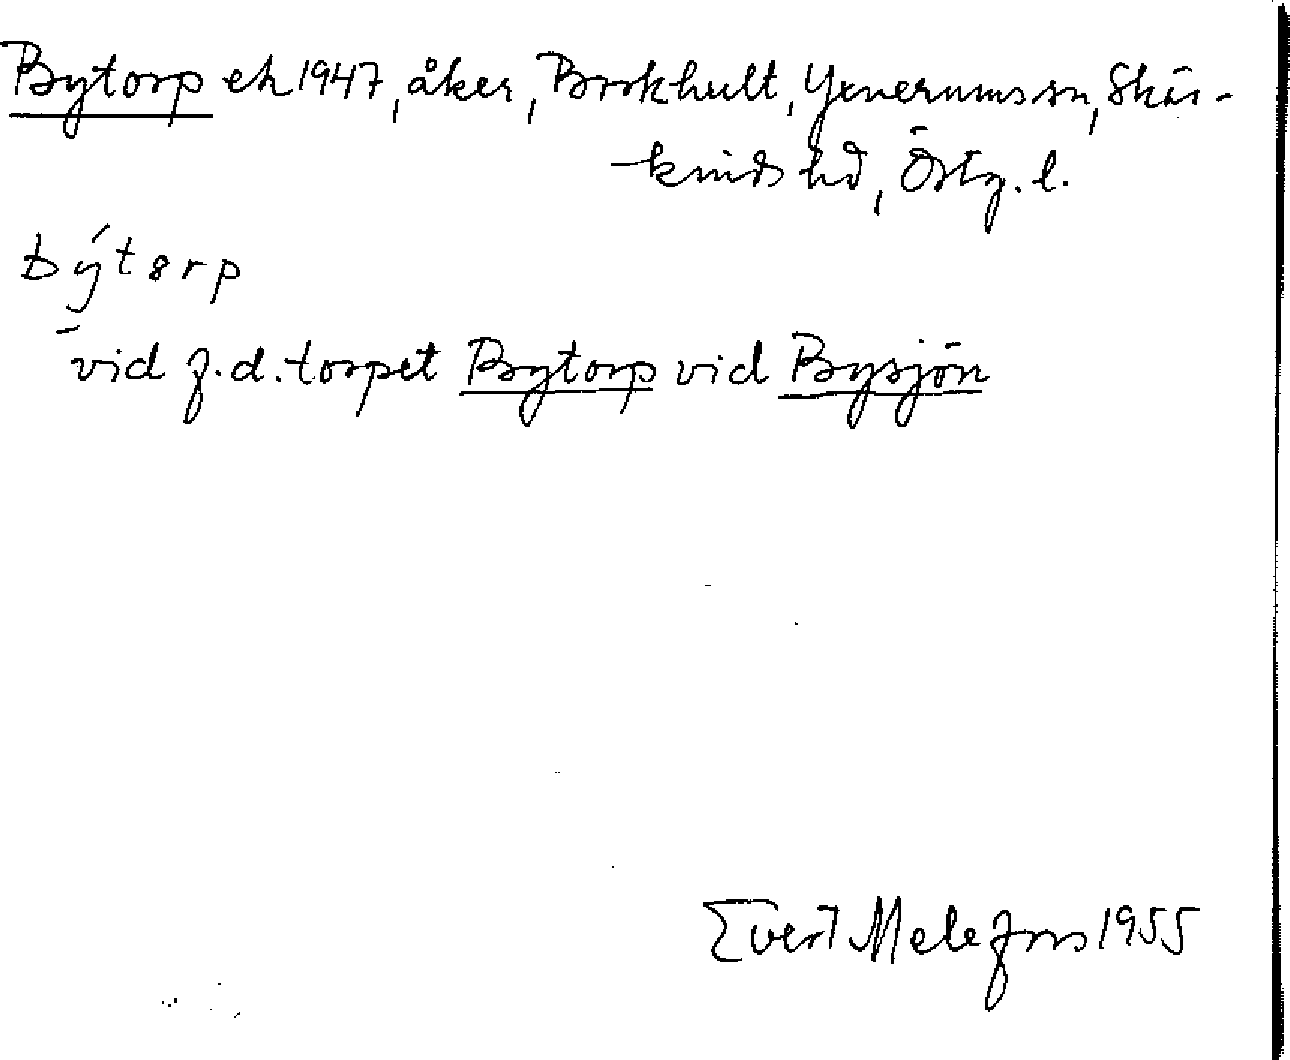 Bytorp ek 1947, åker, Brokhult, Yxnerums sn, Skär-
kinds hd, Östg. l.
býtorp
vid f.d. torpet Bytorp vid Bysjön
Evert Melefors 1955